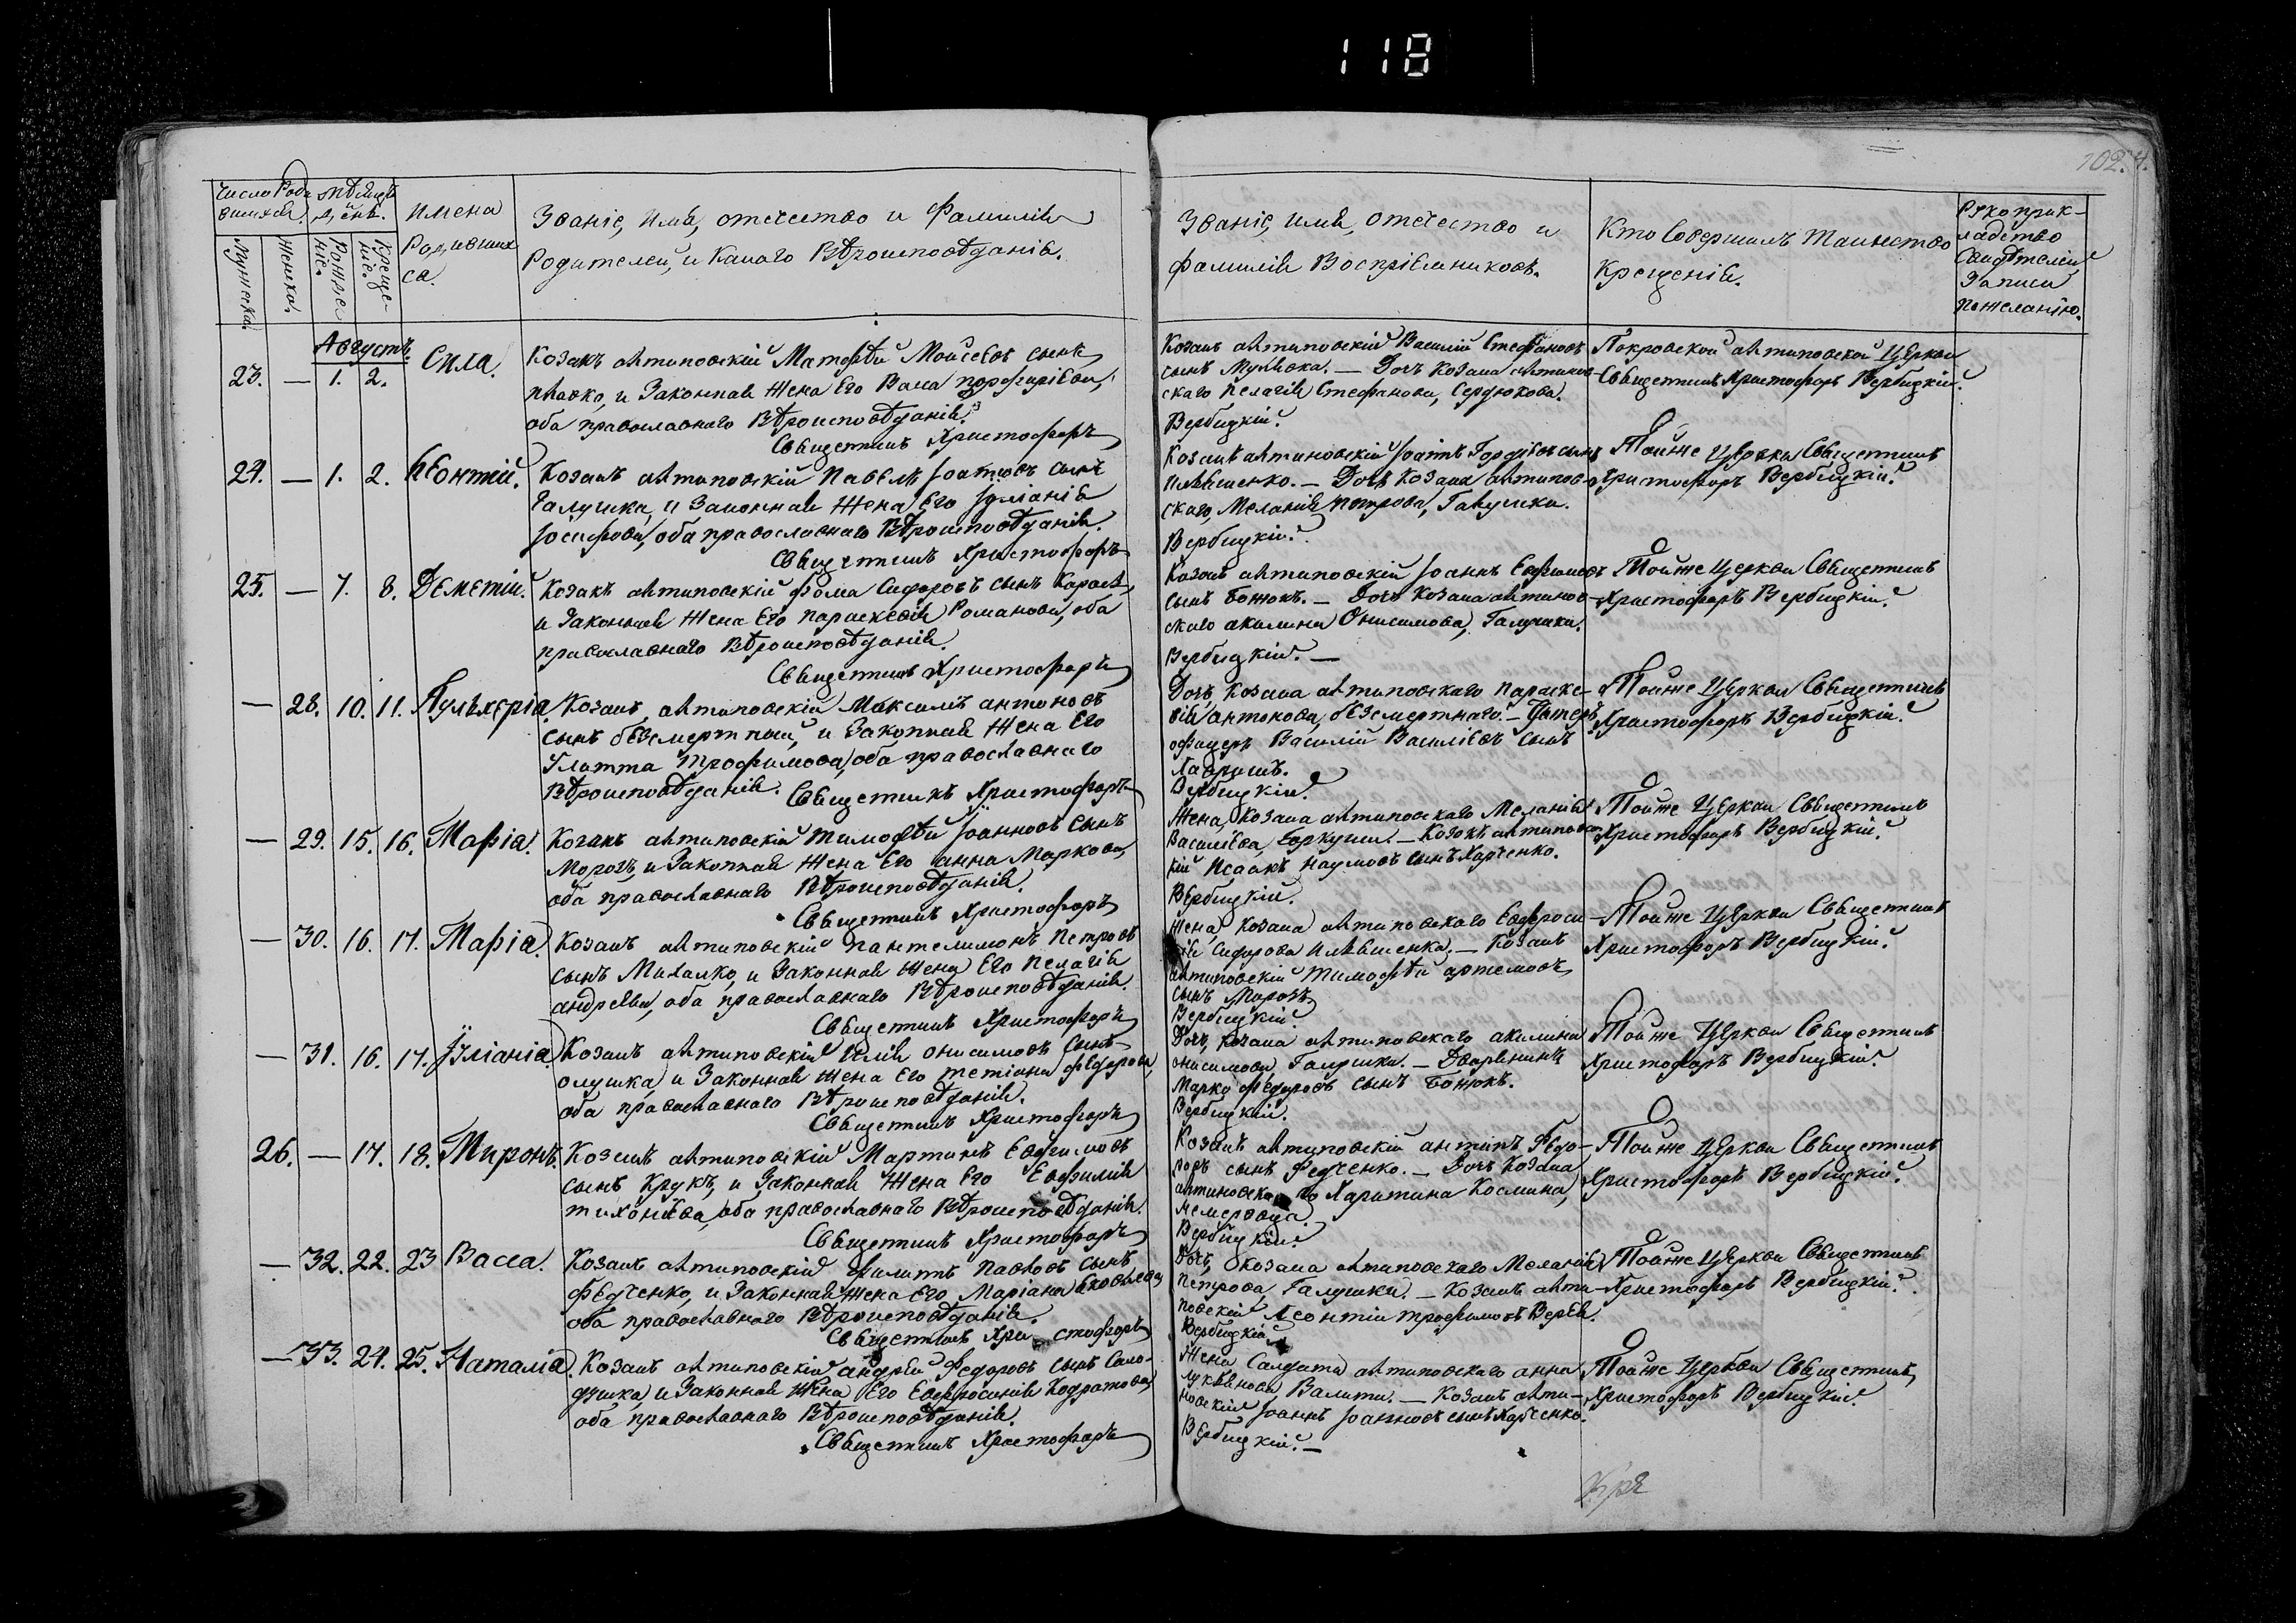 118
102. 4.
Число Роди
вшихся.
Мѣсяцъ
и день.
Мужеска.
Женска.
Рожде
ніе.
Креще
ніе.
Имена
Родивших
ся.
Званіе, Имя, отчество и Фамилія
Родителей, и Какого Вѣроисповѣданія.
Званіе, имя, отчество и
фамилія Воспріемниковъ.
Кто Совершилъ Таинство
Крещенія.
Рукоприк-
ладство
Свидѣтелей
Записи
По желанію.
Августъ.
23. — 1. 2. Сила.
Козакъ антиповскій Матфѣй Моисеевъ сынъ
и Законная Жена Его Васса порфиріева,
оба православнаго Вѣроисповѣданія.
Священникъ Христофоръ
Козакъ антиповскій Василій Стефановъ
сынъ — Дочь Козака антипов-
скаго Пелагія Стефанова, Сердюкова.
Вербицкій.
Покровской антиповской Церкви
Священникъ Христофоръ Вербицкій.
24. — 1. 2. Леонтій.
Козакъ антиповскій Павелъ Іоанновъ сынъ
Галушка, и Законная Жена Его Іуліанія
Іосифова, оба православнаго Вѣроисповѣданія.
Священникъ Христофоръ
Козакъ антиповскій Іоаннъ Гордіевъ сынъ
Ильяшенко. — Дочь Козака антипов-
скаго, Меланія Петрова, Галушки.
Вербицкій.
Тойже Церкви Священникъ
Христофоръ Вербицкій.
25. — 7. 8. Деметій.
Козакъ антиповскій Фома Сидоровъ сынъ
и Законная Жена Его Параскевія Романова, оба
православнаго Вѣроисповѣданія.
Священникъ Христофоръ
Козакъ антиповскій Іоаннъ Евфимовъ
сынъ Божокъ. — Дочь Козака антипов-
скаго акилина Онисимова, Галушки.
Вербицкій. —
Тойже Церкви Священникъ
Христофоръ Вербицкій.
— 28. 10. 11. Пульхерія.
Козакъ, антиповскій Максимъ антоновъ
сынъ безсмертный, и Законная Жена Его
Трофимова, оба православнаго
Вѣроисповѣданія. Священникъ Христофоръ
Дочь, Козака антиповскаго параске-
вія антонова, безсмертнаго. — Унтеръ
офицеръ Василій Василіевъ сынъ
Вербицкій.
Тойже Церкви Священникъ
Христофоръ Вербицкій.
— 29. 15. 16. Марія.
Козакъ антиповскій Тимофѣй Іоанновъ сынъ
Морозъ, и Законная Жена Его анна Маркова,
оба православнаго Вѣроисповѣданія.
Священникъ Христофоръ
Жена, Козака антиповскаго Меланія
Василіева, Горкуши. — Козакъ антиповс-
кій Исаакъ Наумовъ сынъ Харченко.
Вербицкій.
Тойже Церкви Священникъ
Христофоръ Вербицкій.
— 30. 16. 17. Марія.
Козакъ антиповскій Пантелимонъ Петровъ
сынъ Михалко, и Законная Жена Его Пелагія
андреева, оба православнаго Вѣроисповѣданія.
Священникъ Христофоръ
Жена Козака антиповскаго Евфроси-
нія Сидорова Ильяшенка. — Козакъ
антиповскій Тимофѣй артемовъ
сынъ Морозъ
Вербицкій.
Тойже Церкви Священникъ
Христофоръ Вербицкій.
— 31. 16. 17. Іуліанія.
Козакъ антиповскій Илія онисимовъ сынъ
и Законная Жена Его Тетіана Федорова,
оба православнаго Вѣроисповѣданія.
Священникъ Христофоръ
Дочь, Козака антиповскаго акилина
онисимова Галушки. — Дворянинъ
Марко Федоровъ сынъ Божокъ.
Вербицкій.
Тойже Церкви Священникъ
Христофоръ Вербицкій.
26. — 17. 18. Миронъ.
Козакъ антиповскій Мартинъ Евфимовъ
сынъ Крукъ, и Законная Жена Его Евфимія
тихонѣева, оба православнаго Вѣроисповѣданія.
Священникъ Христофоръ
Козакъ антиповскій антипъ Федо-
ровъ сынъ Федченко. — Дочь Козака
антиповскаго Харитина Космина,
Вербицкій.
Тойже Церкви Священникъ
Христофоръ Вербицкій.
— 32. 22. 23 Васса.
Козакъ антиповскій Филиппъ Павловъ сынъ
Федченко, и Законная Жена Его Маріана
оба православнаго Вѣроисповѣданія.
Священникъ Христофоръ
Дочь, Козака антиповскаго Меланія
Петрова, Галушки. — Козакъ анти-
повскій Леонтій трофимовъ
Вербицкій
Тойже Церкви Священникъ
Христофоръ Вербицкій.
— 33. 24. 25. Наталія.
Козакъ антиповскій андрей Федоровъ сынъ
и Законная Жена Его Евфросинія Кодратова,
оба православнаго Вѣроисповѣданія.
Священникъ Христофоръ
Жена Салдата антиповскаго анна
Лукьянова, — Козакъ анти-
повскій Іоаннъ Іоанновъ сынъ Харченко.
Вербицкій. —
Тойже Церкви Священникъ
Христофоръ Вербицкій.